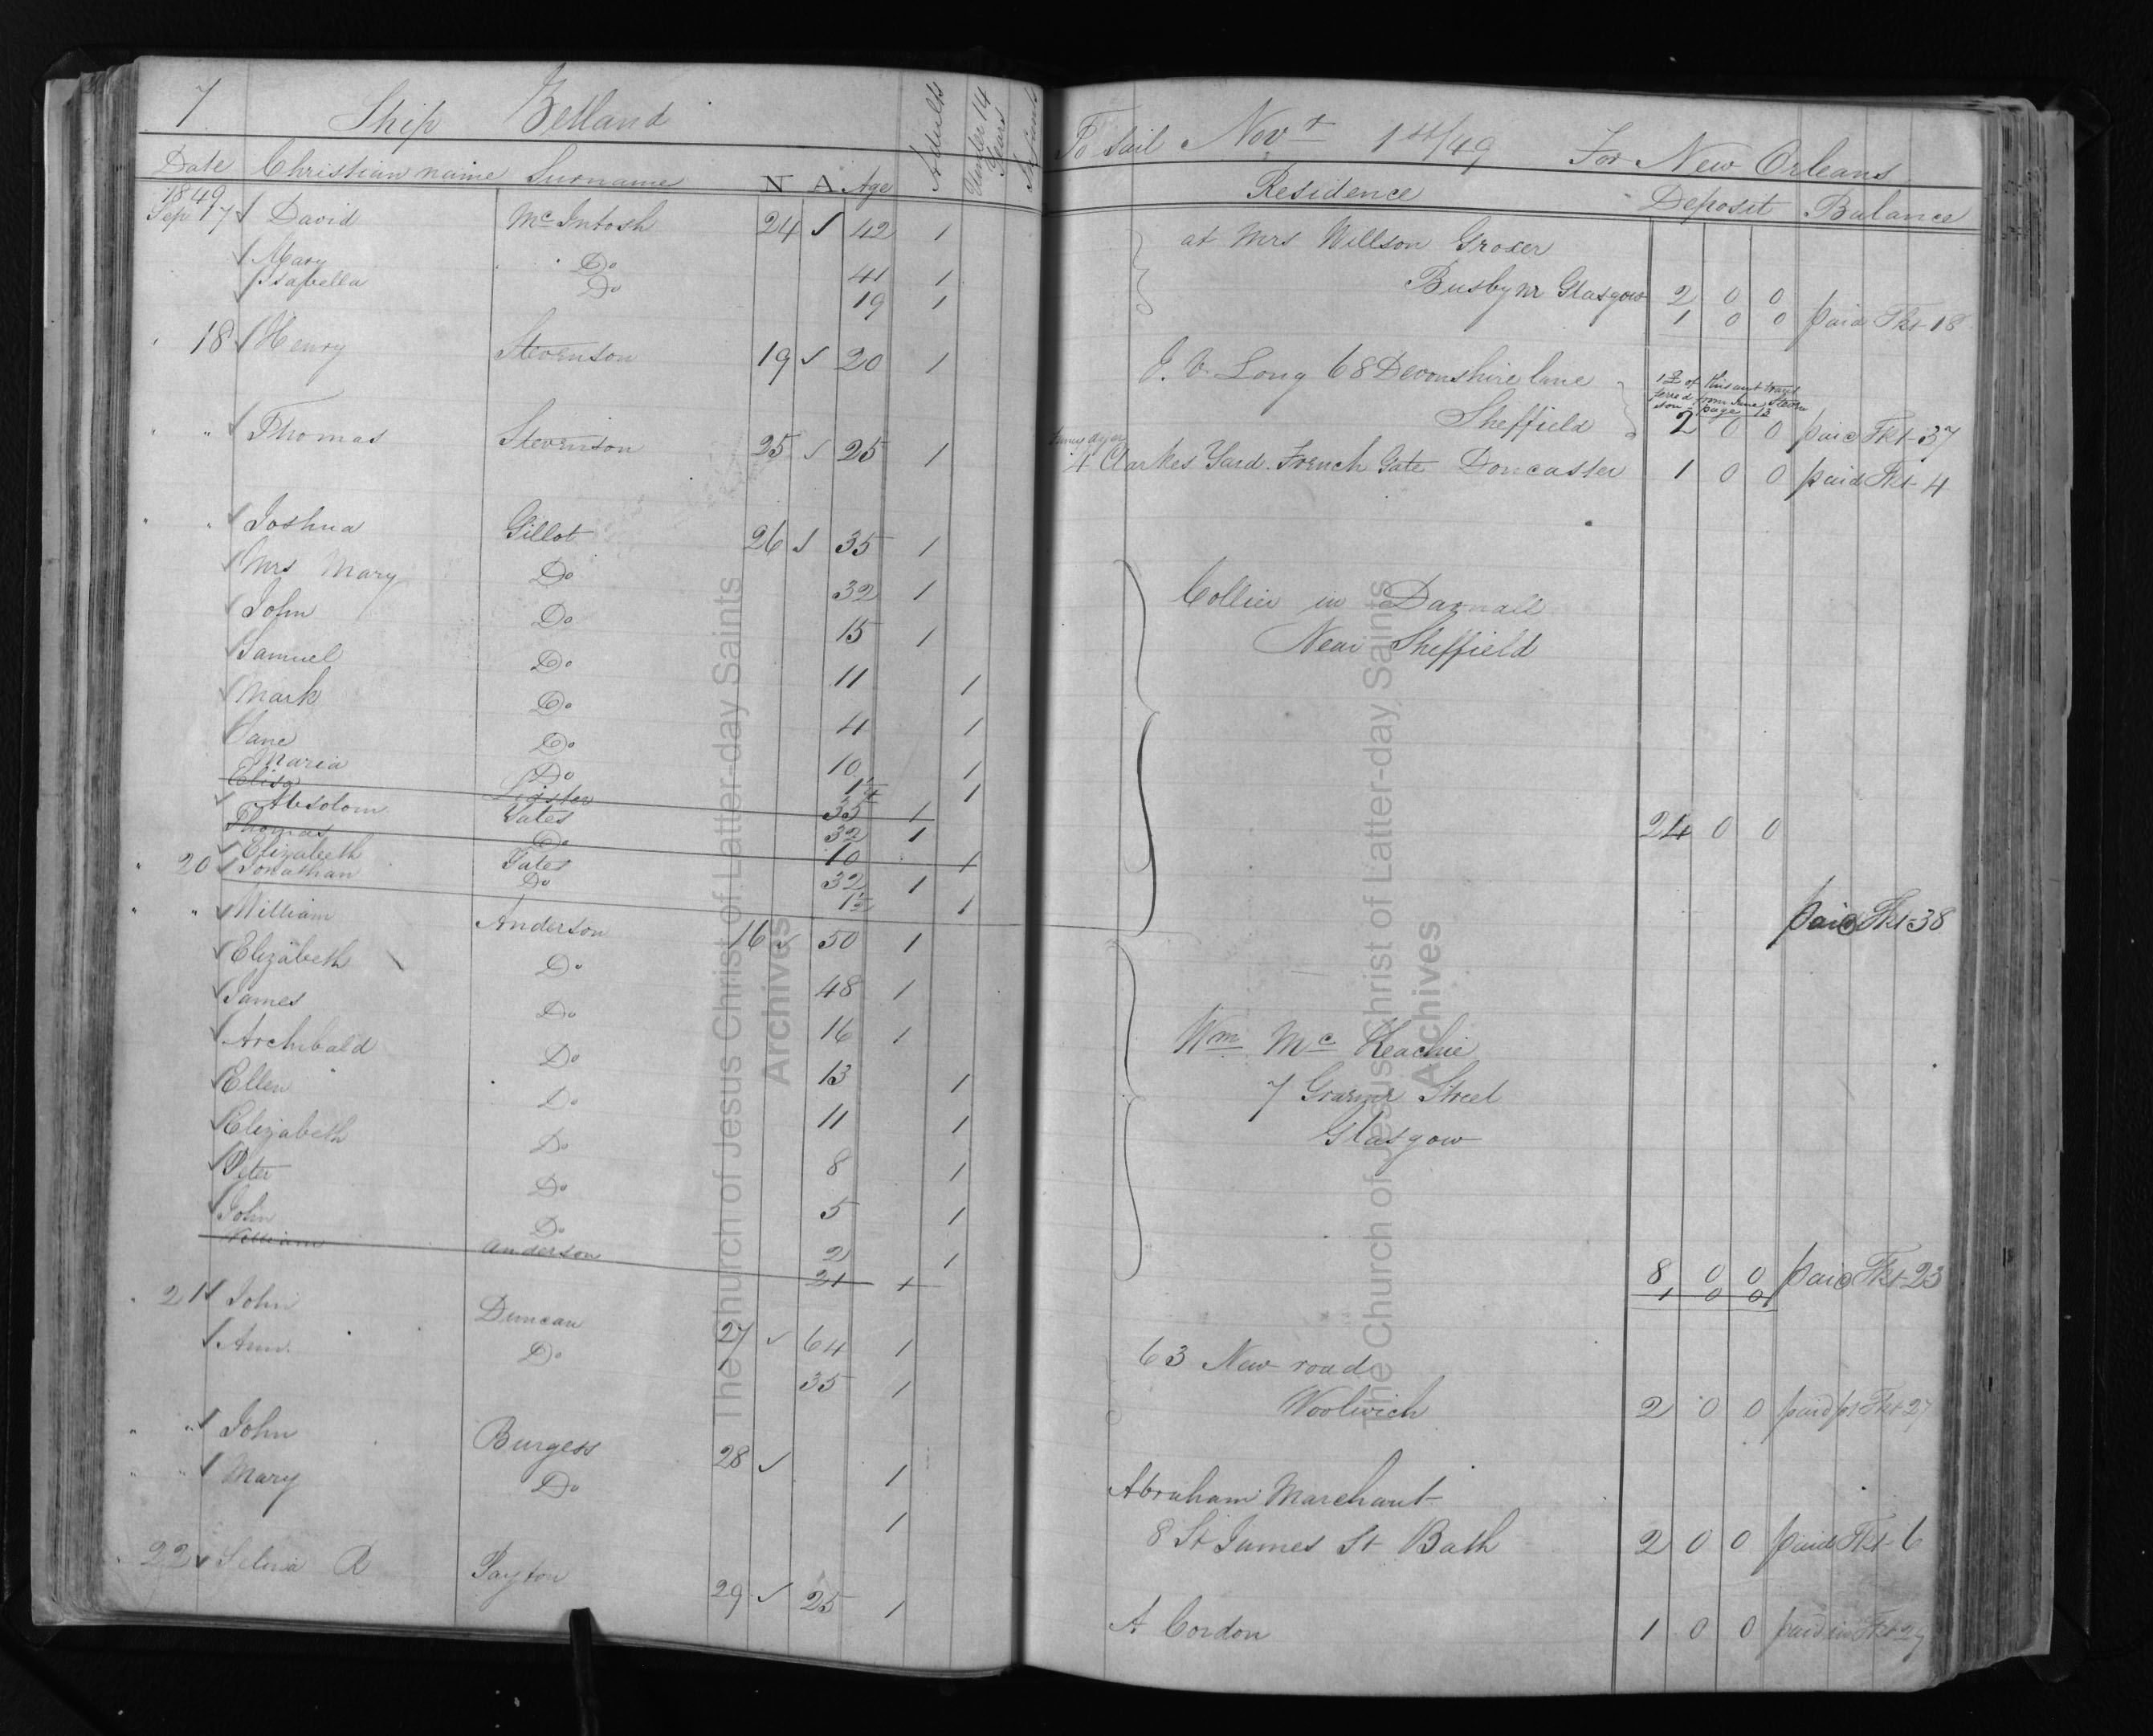 7 Ship Zetland Adults Under 14 Years Infants To Sail Novr 1st/49 For New Orleans
Date Christian name Surname N A Age Residence Deposit Balance
1849
Sep 17 David McIntosh 24 42 1 at Mrs Willson Grocer
Mary Do 41 1 Busby nr Glasgow 2 0 0
Isabella Do 19 1 1 0 0 paid Tkt 18
18 Henry Stevenson 19 20 1 J. V. Long 68 Devonshire lane
Sheffield 2 0 0 paid Tkt 37
1£ of this amt trans
ferred from Jane Steven
son page 13
" " Thomas Stevenson 25 25 1 4 Clarkes Yard French Gate Doncaster 1 0 0 paid Tkt 4
" " Joshua Gillot 26 35 1
Mrs Mary Do 32 1 Collier in Darnall
John Do 15 1 Near Sheffield
Samuel Do 11 1
Mark Do 4 1
Jane Do 10 1
Maria Do 1 1
Eliza Lister 35 1
Absolom Yates 32 1 24 0 0
Thomas Do 10 1
Elizabeth Yates 32 1
" 20 Jonathan Do 1½ 1 paid Tkt 38
" " William Anderson 16 50 1
Elizabeth Do 48 1
James Do 16 1 Wm Mc Keachie
Archibald Do 13 1 7 Street
Ellen Do 11 1 Glasgow
Elizabeth Do 8 1
Peter Do 5 1
John Do 2 1 8 0 0 paid Tkt 23
William Anderson 21 1 1 0 0
" 21 John Duncan 27 64 1 63 New road
Ann Do 35 1 Woolwich 2 0 0 paid pr Tkt 27
" " John Burgess 28 1 Abraham Marchant
" " Mary Do 1 8 St James St Bath 2 0 0 paid Tkt 6
" 22 Selina R Payton 29 25 1 A Cordon 1 0 0 paid Tkt
The Church of Jesus Christ of Latter-day Saints
Archives
The Church of Jesus Christ of Latter-day Saints
Archives